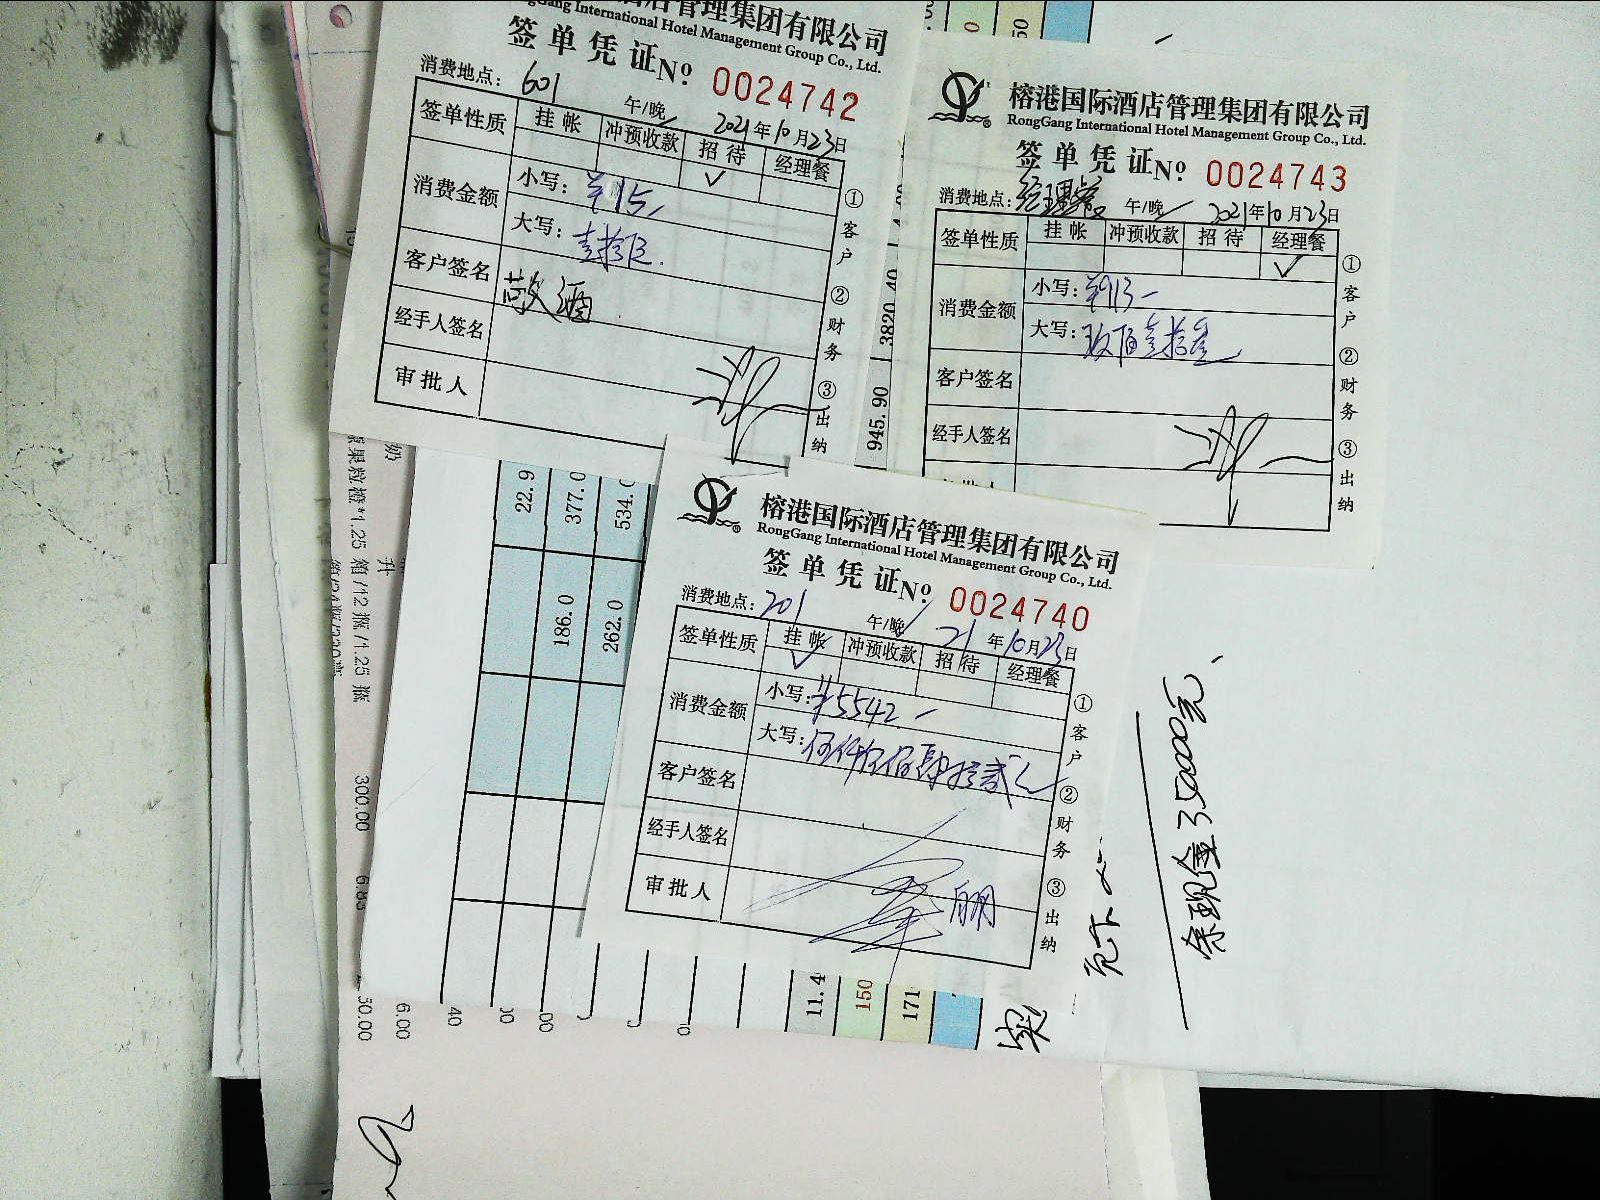 店管理集团有限公司
Gang International Hotel Management Group Co., Ltd.
签单凭证 Nº 0024742
消费地点: 601 午/晚 2021年10月23日
签单性质 挂帐 冲预收款 招待 经理餐
✓
消费金额 小写: ¥15
大写: 壹拾伍
客户签名 敬酒
经手人签名
审批人
①客户 ②财务 ③出纳
榕港国际酒店管理集团有限公司
RongGang International Hotel Management Group Co., Ltd.
签单凭证 Nº 0024743
消费地点: 经理餐 午/晚 2021年10月23日
签单性质 挂帐 冲预收款 招待 经理餐
✓
消费金额 小写: ¥913
大写:
客户签名
经手人签名
①客户 ②财务 ③出纳
榕港国际酒店管理集团有限公司
RongGang International Hotel Management Group Co., Ltd.
签单凭证 Nº 0024740
消费地点: 201 午/晚 21年10月23日
签单性质 挂帐 冲预收款 招待 经理餐
✓
消费金额 小写: ¥5542
大写: 伍仟伍佰肆拾贰
客户签名
经手人签名
审批人
①客户 ②财务 ③出纳
3820.40
945.90
22.9
377.0
534.0
186.0
262.0
果粒橙*1.25
升
箱/12瓶/1.25
瓶
300.00
6.83
50.00
6.00
40
00
11.4
150
171
余现金35000元